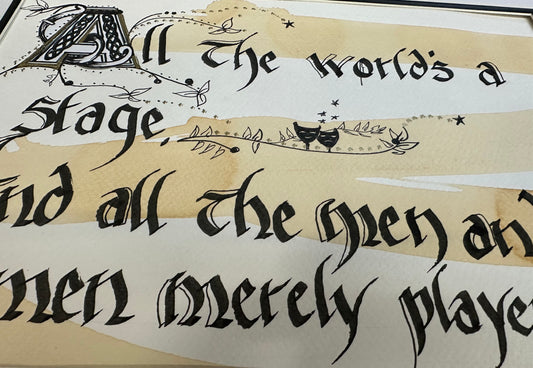 All the world's a
Stage,
And all the men and
women merely players